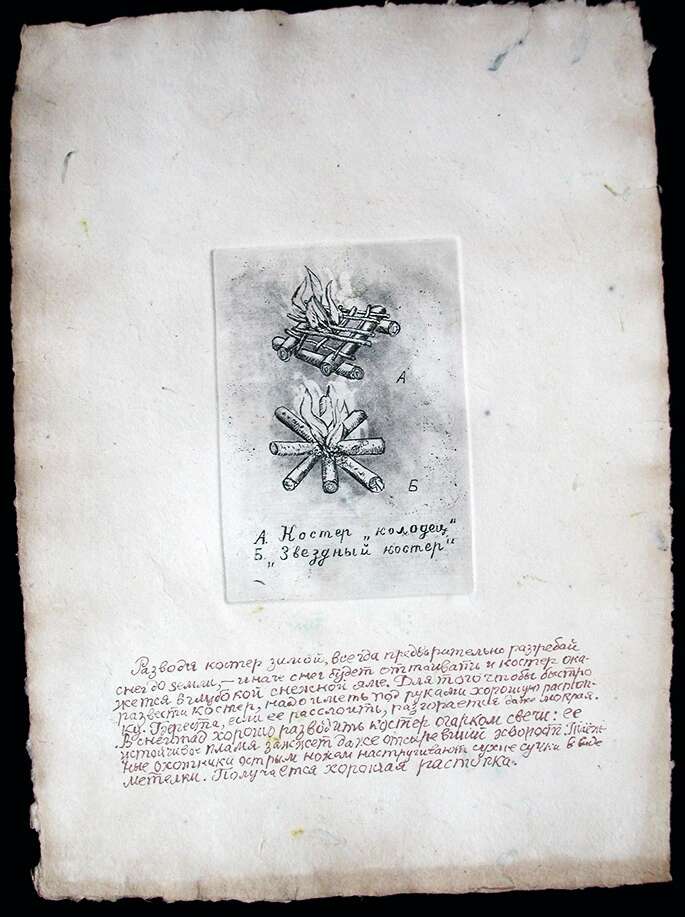 А
Б
А. Костер „колодец"
Б. „Звездный костер"
Разводя костер зимой, всегда предварительно разгребай
снег до земли, – иначе снег будет оттаивать и костер ока-
жется в глубокой снежной яме. Для того чтобы быстро
развести костер, надо иметь под руками хорошую растоп-
ку. Береста, если ее расслоить, разгорается даже мокрая.
В снегопад хорошо разводить костер огарком свечи: ее
устойчивое пламя зажжет даже отсыревший хворост.
ные охотники острым ножом настругивают сухие сучки в виде
метелки. Получается хорошая растопка.